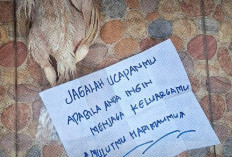 JAGALAH UCAPANMU
APABILA ANDA INGIN
MENJAGA KELUARGAMU
MULUTMU HARIMAUMUA